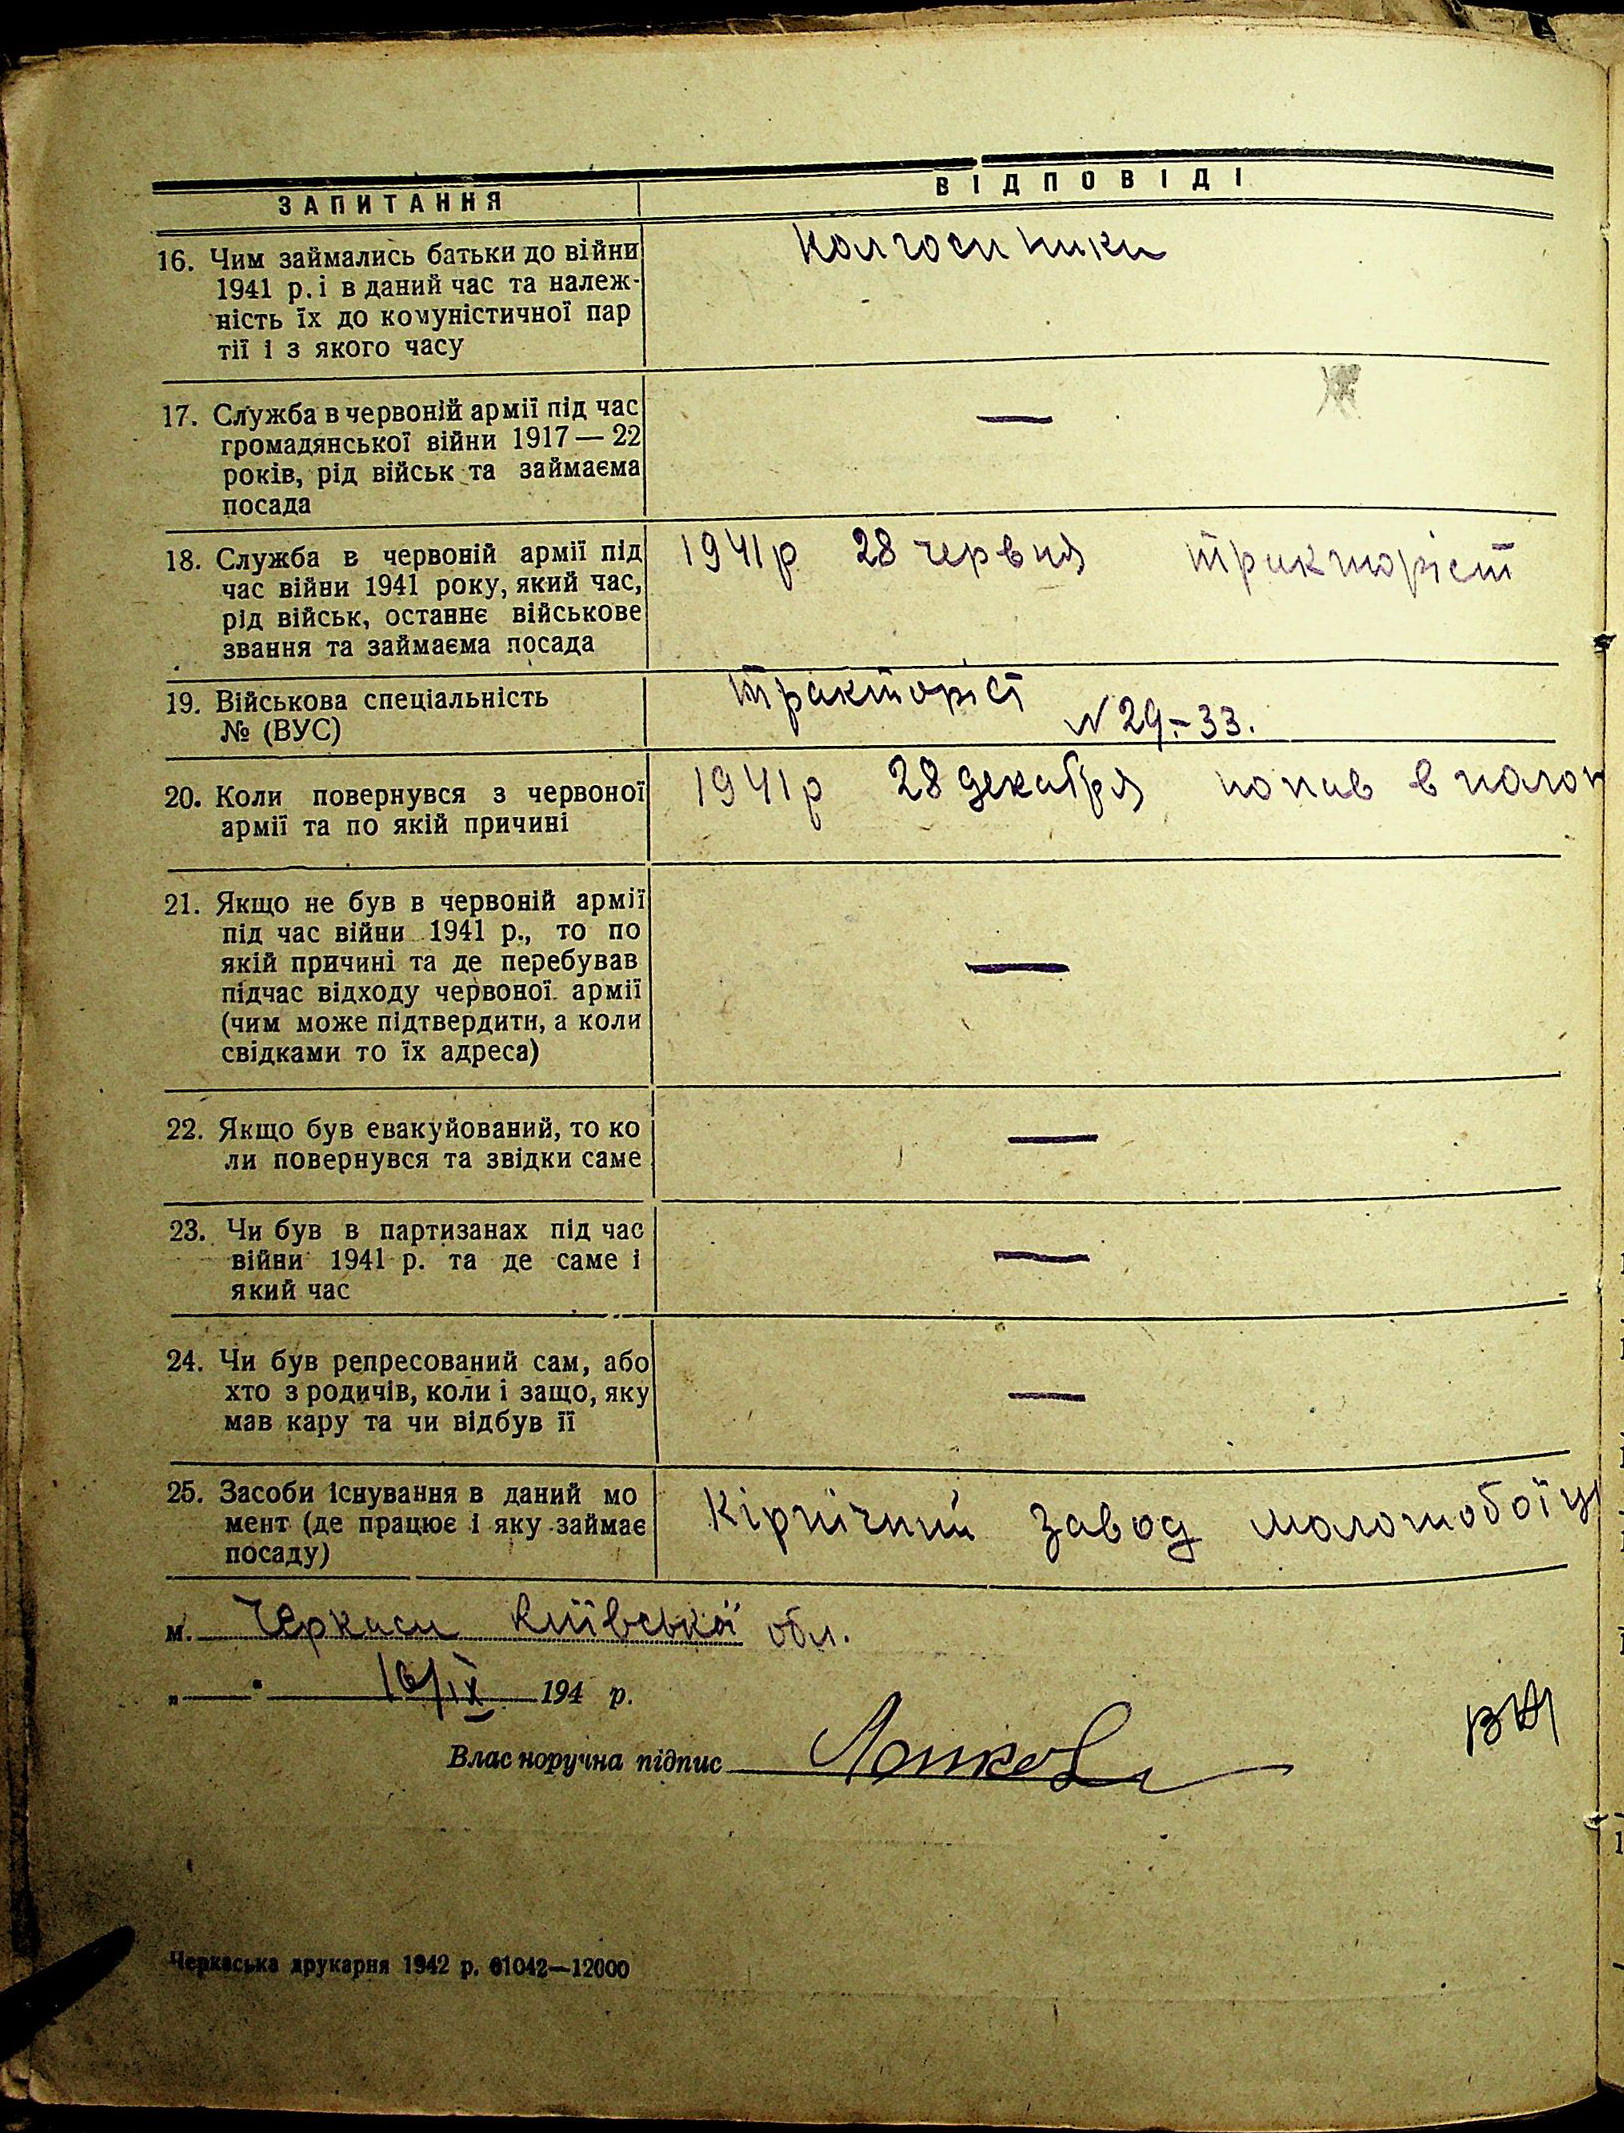 ЗАПИТАННЯ
ВІДПОВІДІ
16. Чим займались батьки до війни
1941 р. і в даний час та належ-
ність їх до комуністичної пар
тії і з якого часу
колгоспники
17. Служба в червоній армії під час
громадянської війни 1917—22
років, рід військ та займаєма
посада
—
18. Служба в червоній армії під
час війни 1941 року, який час,
рід військ, останнє військове
звання та займаєма посада
1941р 28 червня тракторіст
19. Військова спеціальність
№ (ВУС)
тракторіст
N 29.-33.
20. Коли повернувся з червоної
армії та по якій причині
1941р 28 декабря попав в полон
21. Якщо не був в червоній армії
під час війни 1941 р., то по
якій причині та де перебував
підчас відходу червоної армії
(чим може підтвердити, а коли
свідками то їх адреса)
—
22. Якщо був евакуйований, то ко
ли повернувся та звідки саме
—
23. Чи був в партизанах під час
війни 1941 р. та де саме і
який час
—
24. Чи був репресований сам, або
хто з родичів, коли і защо, яку
мав кару та чи відбув її
—
25. Засоби існування в даний мо
мент (де працює і яку займає
посаду)
Кірпічний завод молотобоїц
м. Черкаси Київської обл.
„ " 16/IX 194 р.
Власноручна підпис
Черкаська друкарня 1942 р. 61042—12000